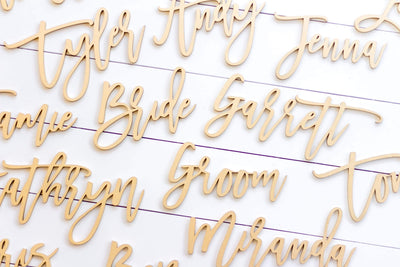 Tyler Andy Jenna
Bride Garrett
Kathryn Groom
Miranda